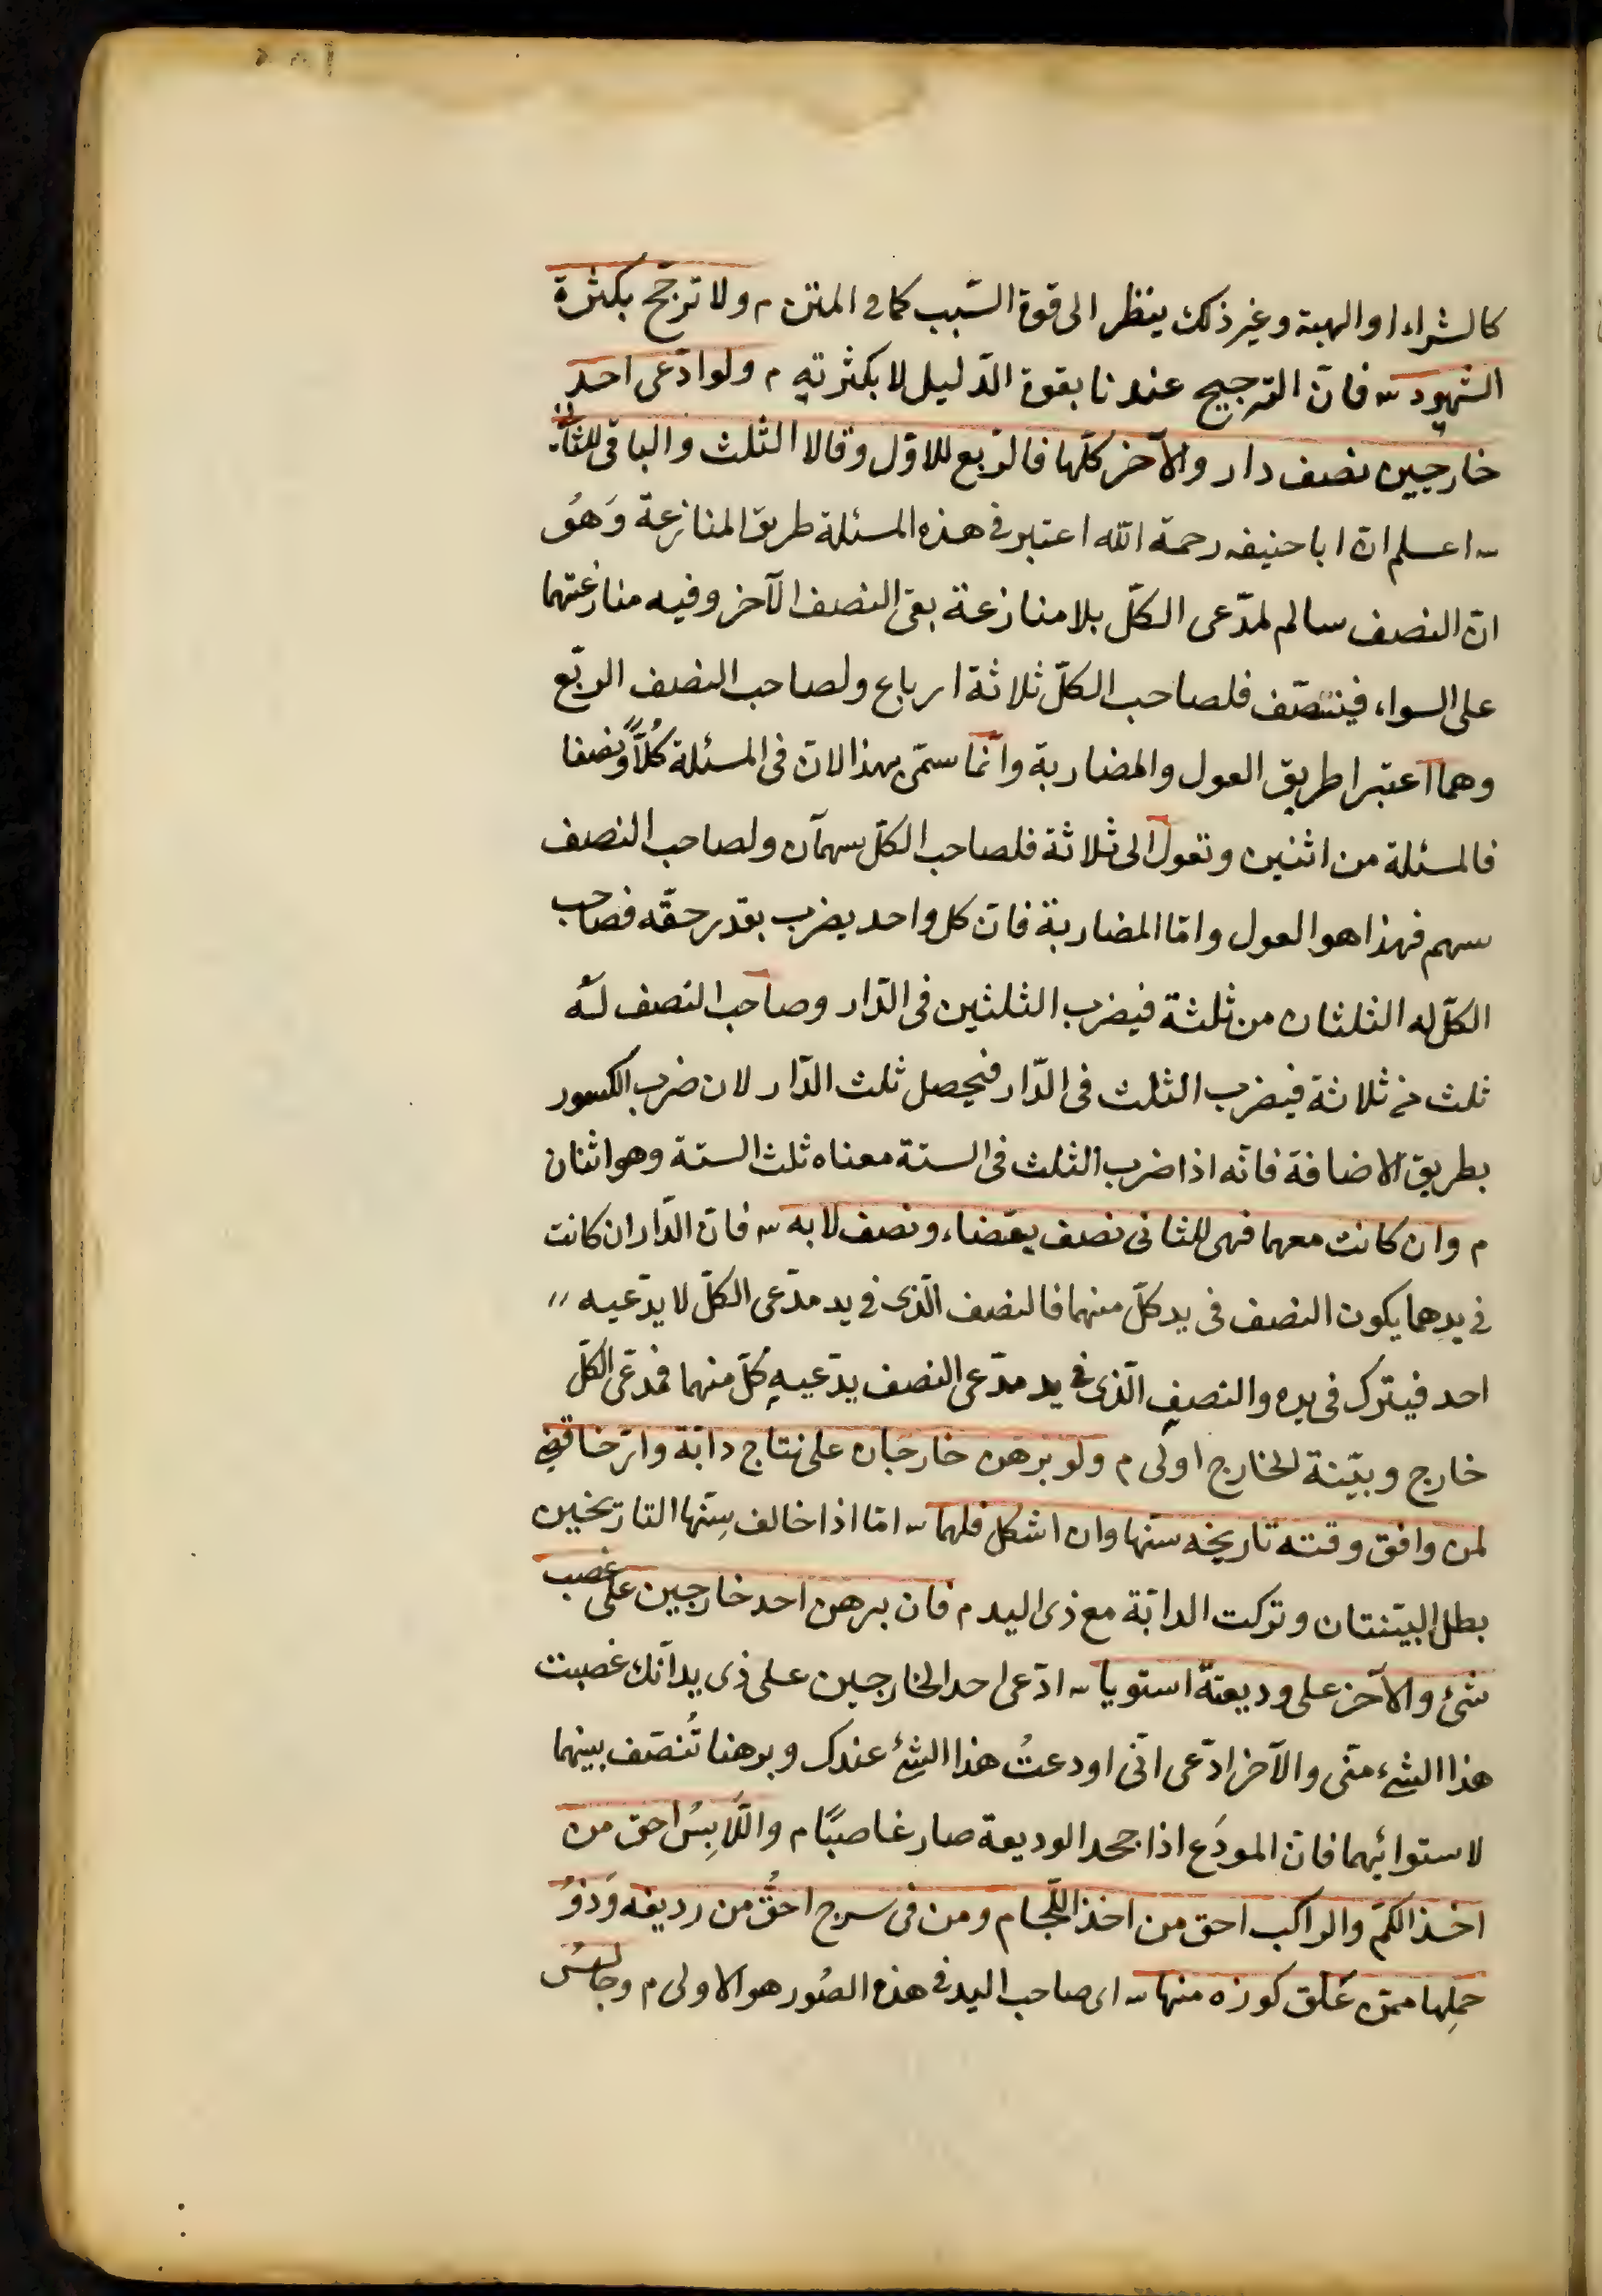 كالشراء او الهبة وغير ذلك ينظر الى قوة السّبب كما فى المتن م ولا ترجّح بكثرة
الشهود ش فانّ الترجيح عندنا بقوة الدّليل لا بكثرتهِ م ولو ادّعى احد
خارجين نصف دار والآخر كلّها فالرّبع للاوّل وقالا الثلث والباقى للثانى
ش اعلم انّ ابا حنيفه رحمة الله اعتبر فى هذه المسئلة طريق المنازعة وَهوَ
انّ النصف سالم لمدّعى الكلّ بلا منازعة بقى النصف الآخر وفيه منازعتهما
على السواء فينتصّف فلصاحب الكلّ ثلاثة ارباع ولصاحب النصف الربّع
وهما اعتبرا طريق العول والمضاربة وانّما سمّى بهذا لانّ فى المسئلة كُلّاً ونصفا
فالمسئلة من اثنين وتعول الى ثلاثة فلصاحب الكلّ سهمان ولصاحب النصف
سهم فهذا هو العول وامّا المضاربة فانّ كل واحد يضرب بقدر حقّه فصاحب
الكلّ له الثلثان من ثلثة فيضرب الثلثين فى الدّار وصاحب النصف لهُ
ثلث من ثلاثة فيضرب الثلث فى الدّار فيحصل ثلث الدّار لان ضرب الكسور
بطريق الاضافة فانّه اذا ضرب الثلث فى الستة معناه ثلث الستة وهو اثنان
م وان كانت معهما فهى للثانى نصف بقضاء ونصف لا به ش فانّ الدّار ان كانت
فى يدهما يكون النصف فى يد كلّ منهما فالنصف الّذى فى يد مدّعى الكلّ لا يدّعيه
احد فيترك فى يده والنصفِ الّذى فى يد مدّعى النصف يدّعيهِ كلّ منهما فمدّعى الكلّ
خارج وبيّنة الخارج اولى م ولو برهن خارجان على نتاج دابّة وارّخا قضى
لمن وافق وقته تاريخه سنّها وان اشكل فلهما ش امّا اذا خالف سِنّها التاريخين
بطل البيّنتان وتركت الدابّة مع ذى اليد م فان برهن احد خارجين على غصب
شئ والآخر على وديعتهّ استويا ش ادّعى احد الخارجين على ذى يد انّك غصبت
هذا الشئ منّى والآخر ادّعى انّى اودعتُ هذا الشئ عندك وبرهنا تُنصّف بينهما
لاستوائهما فانّ المودَع اذا جحد الوديعة صار غاصبًا م واللَّابِسُ احق من
اخذ الكمّ والراكب احق من اخذ اللّجام ومن فى سرج احقُّ من رديفه وَذوُ
حمِلها ممّن عَلّق كوزه منها ش اى صاحب اليد فى هذه الصُور هو الاولى م وجالسُ